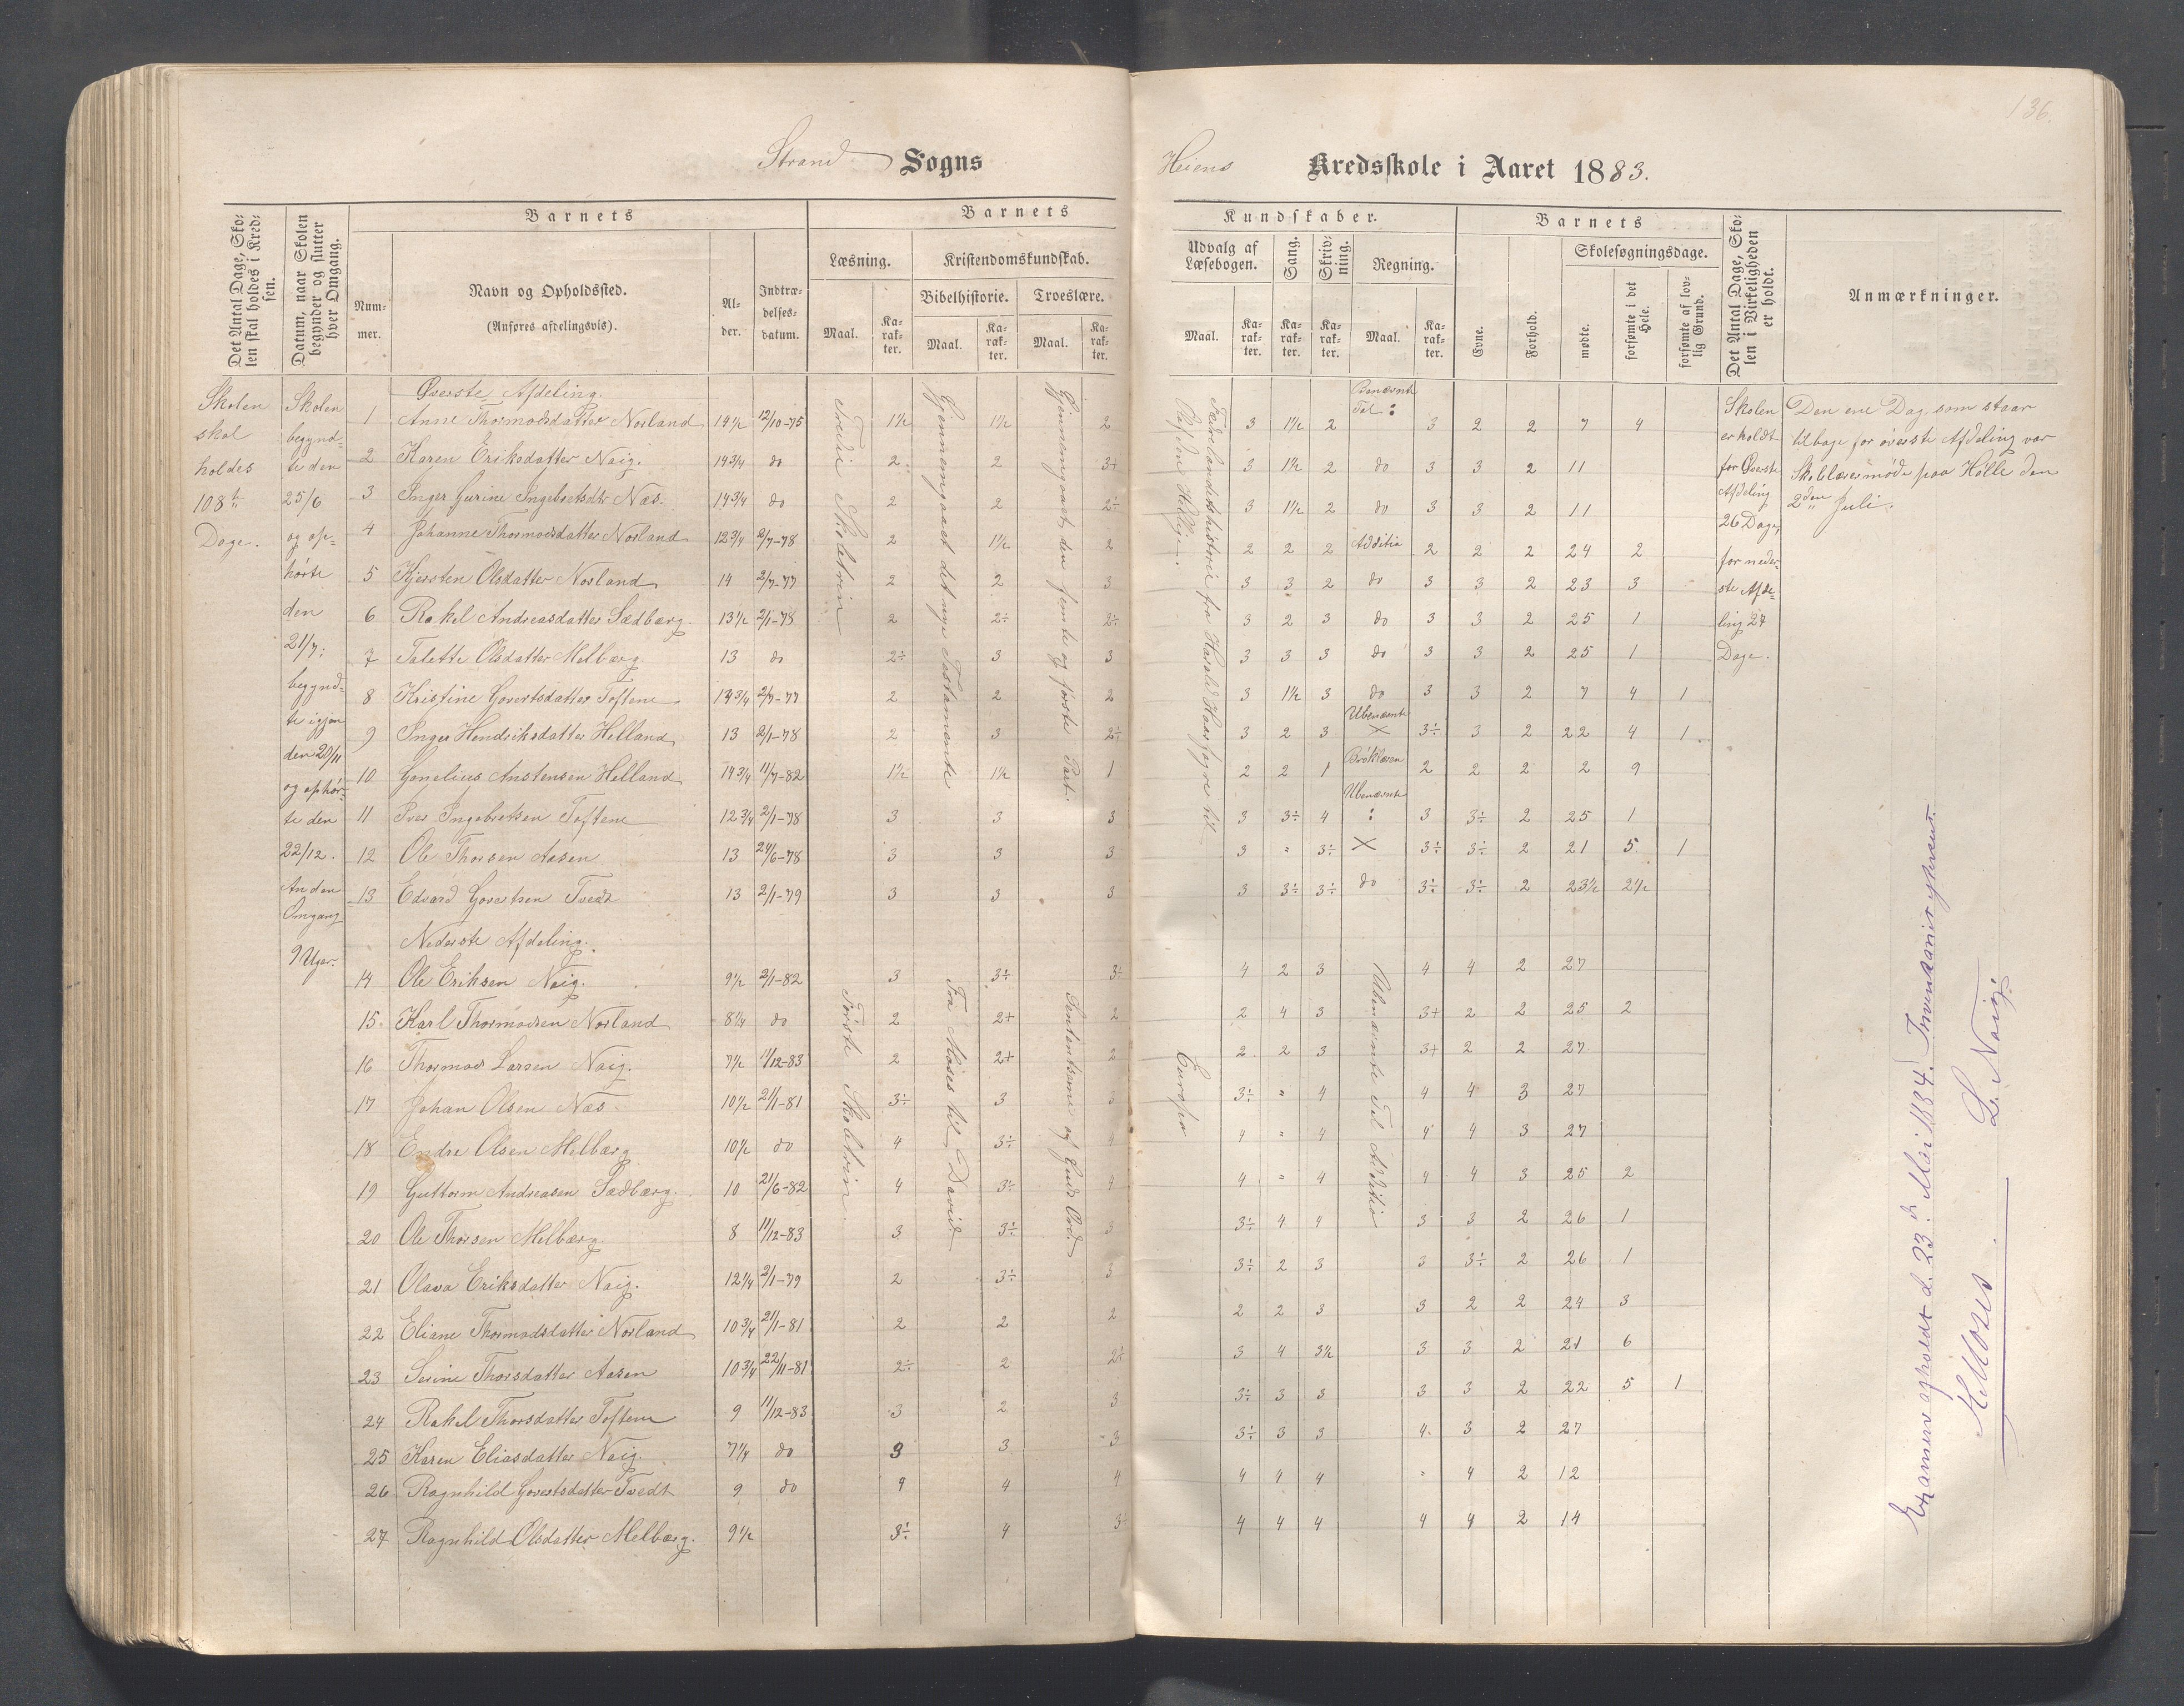 136.
Strand Sogns
Heiens Kredsskole i Aaret 1883.
Det Antal Dage, Skolen skal holdes i Kredsen.
Datum, naar Skolen begynder og slutter hver Omgang.
Barnets
Nummer.
Navn og Opholdssted.
(Anføres afdelingsvis).
Alder.
Indtrædelsesdatum.
Barnets Kundskaber.
Læsning.
Maal.
Karakter.
Kristendomskundskab.
Bibelhistorie.
Maal.
Karakter.
Troeslære.
Maal.
Karakter.
Udvalg af Læsebogen.
Maal.
Karakter.
Sang.
Karakter.
Skrivning.
Karakter.
Regning.
Maal.
Karakter.
Barnets
Evne.
Forhold.
Skolesøgningsdage.
mødte.
forsømte i det Hele.
forsømte af lovlig Grund.
Det Antal Dage, Skolen i Virkeligheden er holdt.
Anmærkninger.
Skolen
skal
holdes
108
Dage.
Skolen
begynd-
te den
25/6
og op-
hørte
den
21/7;
begynd-
te igjen
den 20/11
og ophør-
te den
22/12.
Anden
Omgang
9 Uger.
Øverste Afdeling.
1 Anne Thormodsdatter Norland 14 1/2 12/10-75 1 1/2 1 1/2 2 3 1 1/2 2 Benævnte Tal : 3 2 2 7 4
2 Karen Eriksdatter Naig. 14 3/4 do 2 2 3+ 3 1 1/2 2 do 3 3 2 11
3 Inger Gurine Ingebretsdtr Næs. 14 3/4 do 2 2 2÷ 3 1 1/2 2 do 3 3 2 11
4 Johanne Thormodsdatter Norland 12 3/4 2/7-78 2 1 1/2 2 2 2 2 Additio 2 2 2 24 2
5 Kjersten Olsdatter Norland 14 2/7-77 2 2 3 3 3 2 do 3 3 2 23 3
6 Rakel Andreasdatter Sædberg 13 1/2 2/1-78 2 2÷ 2÷ 3 2 3 do 3 3 2 25 1
7 Talette Olsdatter Melberg 13 do 2÷ 3 3 3 3 3 do 3 3 2 25 1
8 Kristine Govertsdatter Toftene 13 3/4 2/7-77 2 2 2 3 1 1/2 3 do 3 3 2 7 4 1
9 Inger Hendriksdatter Helland 13 2/1-78 2 3 2÷ 3 2 3 Ubenævnte X 3÷ 3 2 22 4 1
10 Gonelius Anstensen Helland 14 3/4 11/7-82 1 1/2 1 1/2 1 2 2 1 Brøklæren 2 2 2 2 9
11 Iver Ingebretsen Toftene 12 3/4 2/1-78 3 3 3 3 3÷ 4 Ubenævnte : 3 3÷ 2 25 1
12 Ole Thorsen Aasen 13 24/6-78 3 3 3 3 " 3÷ X 3÷ 3÷ 2 21 5 1
13 Edvard Govertsen Tvedt 13 2/1-79 3 3 3 3 3÷ 3÷ do 3÷ 3÷ 2 23 1/2 2 1/2
Tredie Skoletrin
Gjennemgaaet det nye Testamente
Gjennemgaaet den femte og første Part.
Fædrelandshistorie fra Harald Haarfagre til
Skolen
er holdt
for Øverste
Afdeling
26 Dage,
for neder-
ste Afde-
ling 27
Dage.
Den ene Dag, som staar
tilbage for øverste Afdeling var
Skolelærermøde paa Hølle den
2den Juli.
Nederste Afdeling.
14 Ole Eriksen Naig. 9 1/2 2/1-82 3 3÷ 3÷ 4 2 3 4 4 2 27
15 Karl Thormodsen Norland 8 1/4 do 2 2+ 2 2 4 3 3+ 2 2 25 2
16 Thormod Larsen Naig. 7 1/2 11/12-83 2 2+ 2 2 2 3 3+ 2 2 27
17 Johan Olsen Næs 10 1/2 21/1-81 3÷ 3 3 3÷ " 4 4 4 3 27
18 Endre Olsen Melberg 10 1/2 do 4 3÷ 4 4 " 4 4 4 3 27
19 Guttorm Andreasen Sædberg. 10 21/6-82 4 3÷ 4 4 " 4 4 4 3 25 2
20 Ole Thorsen Melberg. 8 11/12-83 3 3÷ 3 3÷ 4 4 3 3 2 26 1
21 Olava Eriksdatter Naig. 12 1/4 2/1-79 2 3÷ 3 3÷ 2 3 3 3÷ 2 26 1
22 Eliane Thormodsdatter Norland 10 3/4 21/1-81 2 2 2 2 2 3 3 2 2 24 3
23 Serine Thorsdatter Aasen 10 3/4 22/11-81 2÷ 2 2÷ 3 4 3 1/2 3 3 2 21 6
24 Rakel Thorsdatter Toftene 9 11/12-83 3 2 3 3÷ 3 3 3 3 2 22 5 1
25 Karen Eliasdatter Naig. 7 1/4 do 3 3 3 3÷ 3 3 4 3 2 27
26 Ragnhild Govertsdatter Tvedt 9 do 4 4 4 4 4 4 " 4 2 12
27 Ragnhild Olsdatter Melberg. 9 1/2 3÷ 4 3÷ 4 4 4 4 4 2 14
Første Skoletrin.
Fra Moses til David
Sententserne af Guds Ord.
Europa
Ubenævnte Tal Additio
Examen afholdt d. 23 Mai 1884.
L. Naig.